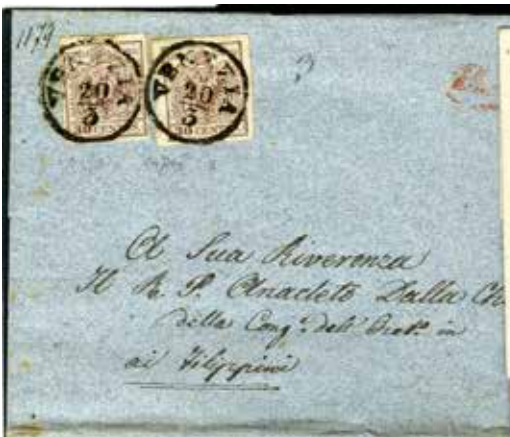 1179
VENEZIA
20
3
VENEZIA
20
3
30 CENT
3
A Sua Riverenza
Il R. P. Anacleto Dalla Ch
della Cong.e dell' Orat.o in
ai Filippini